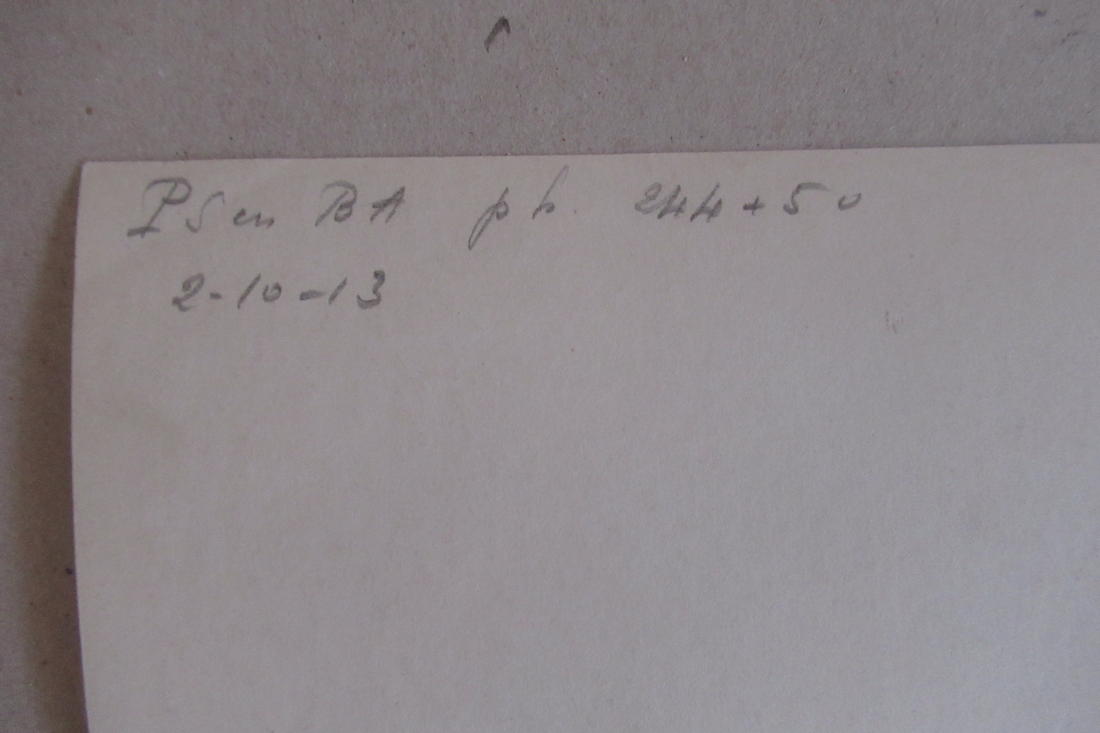 PS en BA ph. 244+50
2-10-13